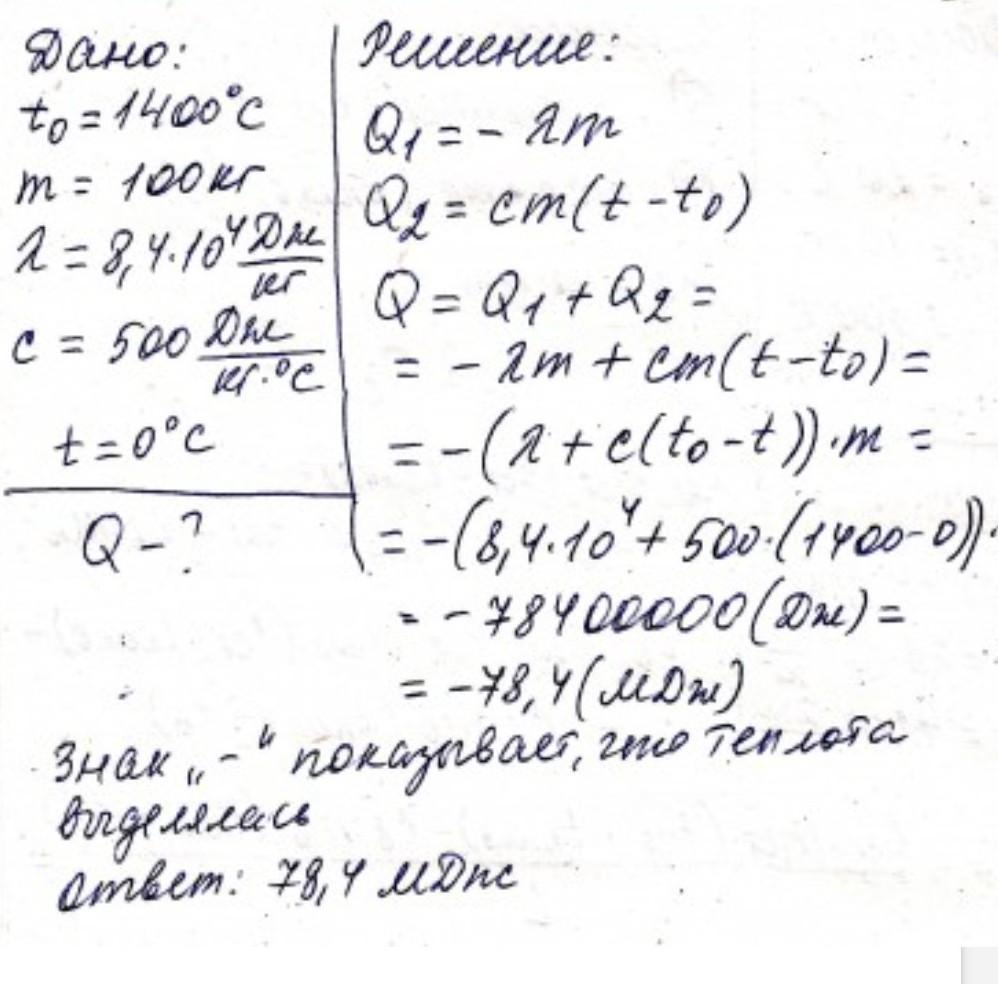 Дано:
t₀ = 1400°C
m = 100кг
λ = 8,4·10⁴ Дж/кг
c = 500 Дж/кг·°C
t = 0°C
Q - ?
Решение:
Q₁ = - λm
Q₂ = cm(t - t₀)
Q = Q₁ + Q₂ =
= - λm + cm(t - t₀) =
= -(λ + c(t₀ - t))·m =
= -(8,4·10⁴ + 500·(1400-0))·
= - 78400000 (Дж) =
= -78,4 (МДж)
Знак „-" показывает, что теплота
выделялась
Ответ: 78,4 МДж